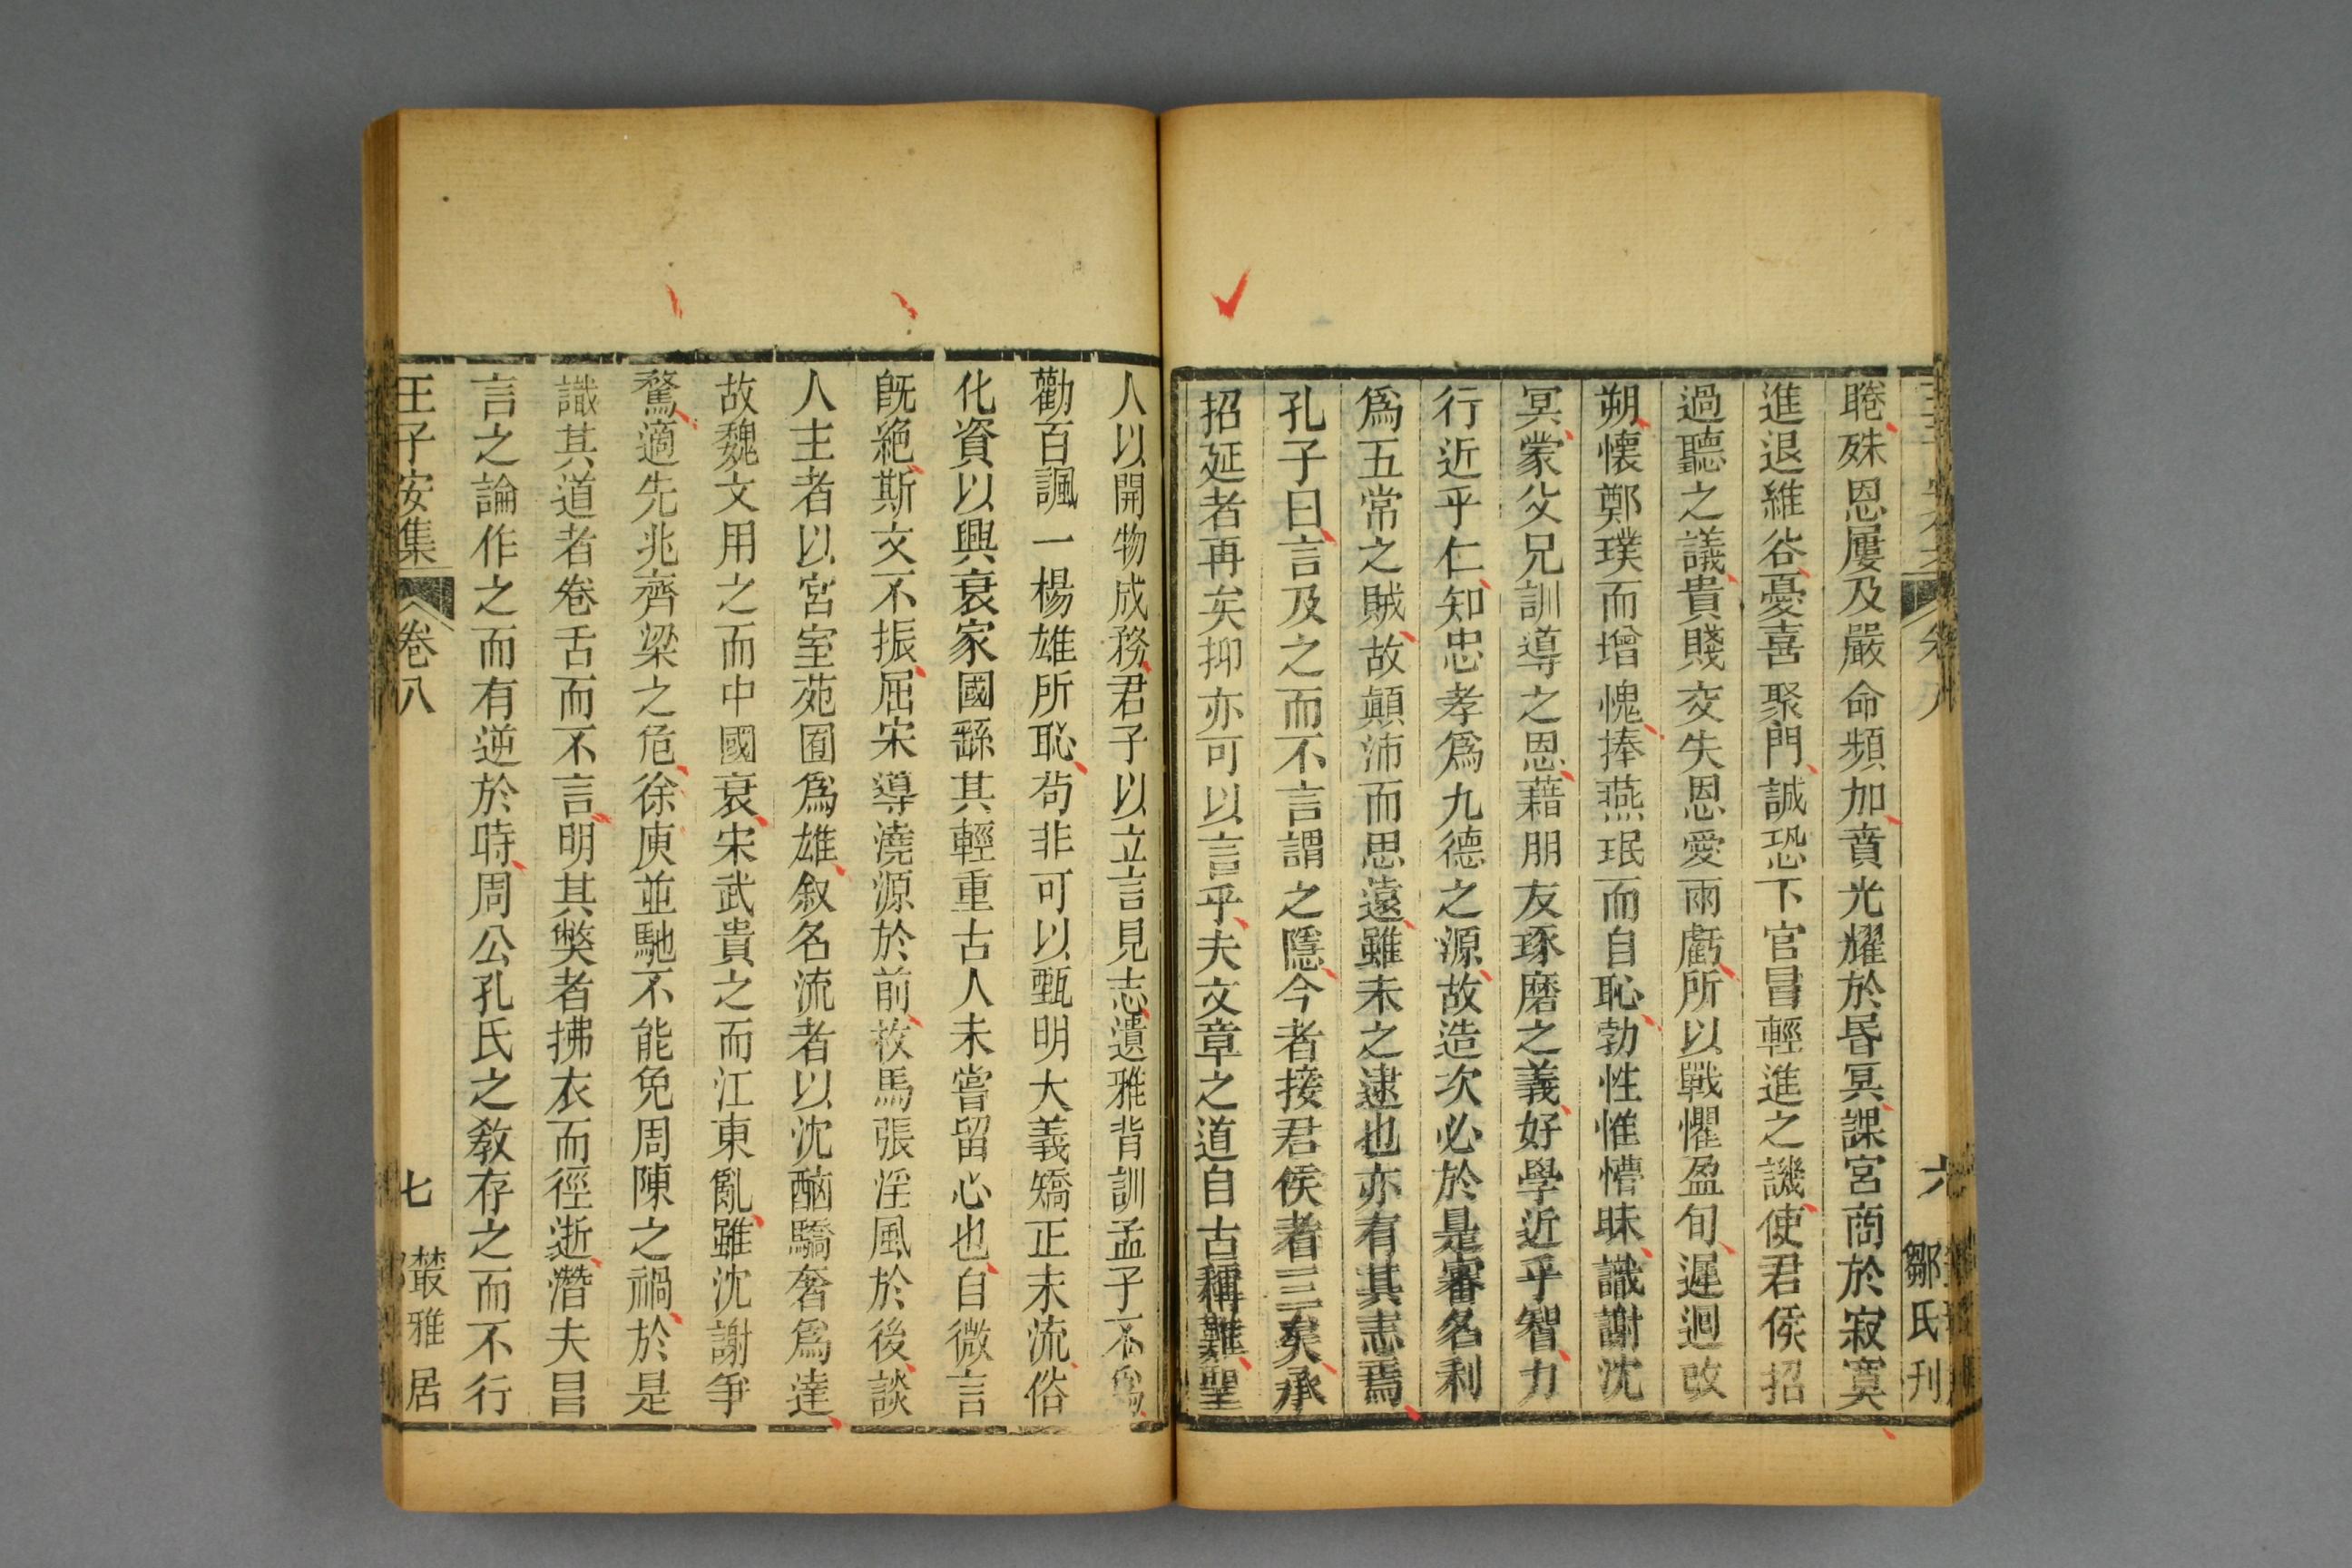 睠殊恩屢及嚴命頻加賁光耀於昏冥課宮商於寂寞
進退維谷憂喜聚門誠恐下官冒輕進之譏使君侯招
過聽之議貴賤交失恩愛兩虧所以戰懼盈旬遲迴改
朔懷鄭璞而增愧捧燕珉而自恥勃性惟懵昧識謝沈
冥蒙父兄訓導之恩藉朋友琢磨之義好學近乎智力
行近乎仁知忠孝爲九德之源故造次必於是審名利
爲五常之賊故顛沛而思遠雖未之逮也亦有其志焉
孔子曰言及之而不言謂之隱今者接君侯者三矣承
招延者再矣抑亦可以言乎夫文章之道自古稱難聖
人以開物成務君子以立言見志遺雅背訓孟子不爲
勸百諷一楊雄所恥茍非可以甄明大義矯正末流俗
化資以興衰家國繇其輕重古人未嘗留心也自微言
旣絶斯文不振屈宋導澆源於前枚馬張淫風於後談
人主者以宮室苑囿爲雄叙名流者以沈酗驕奢爲達
故魏文用之而中國衰宋武貴之而江東亂雖沈謝爭
騖適先兆齊梁之危徐庾並馳不能免周陳之禍於是
識其道者卷舌而不言明其獘者拂衣而徑逝潛夫昌
言之論作之而有逆於時周公孔氏之敎存之而不行
王子安集 卷八 七 叢雅居
六 鄒氏刊